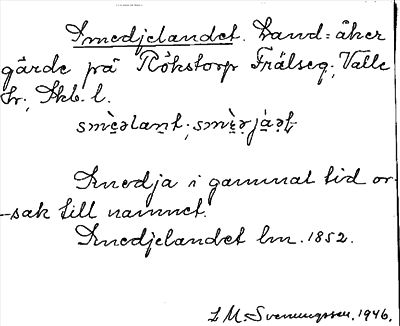 Smedjelandet. Land = åker
gärde på Rökstorp Frälseg., Valle
hr., Skb. l.
smè̤əlaṇt; smè̤rjá̤ət
Smedja i gammal tid or-
-sak till namnet.
Smedjelandet lm. 1852.
L. M. Svenungsson. 1946.